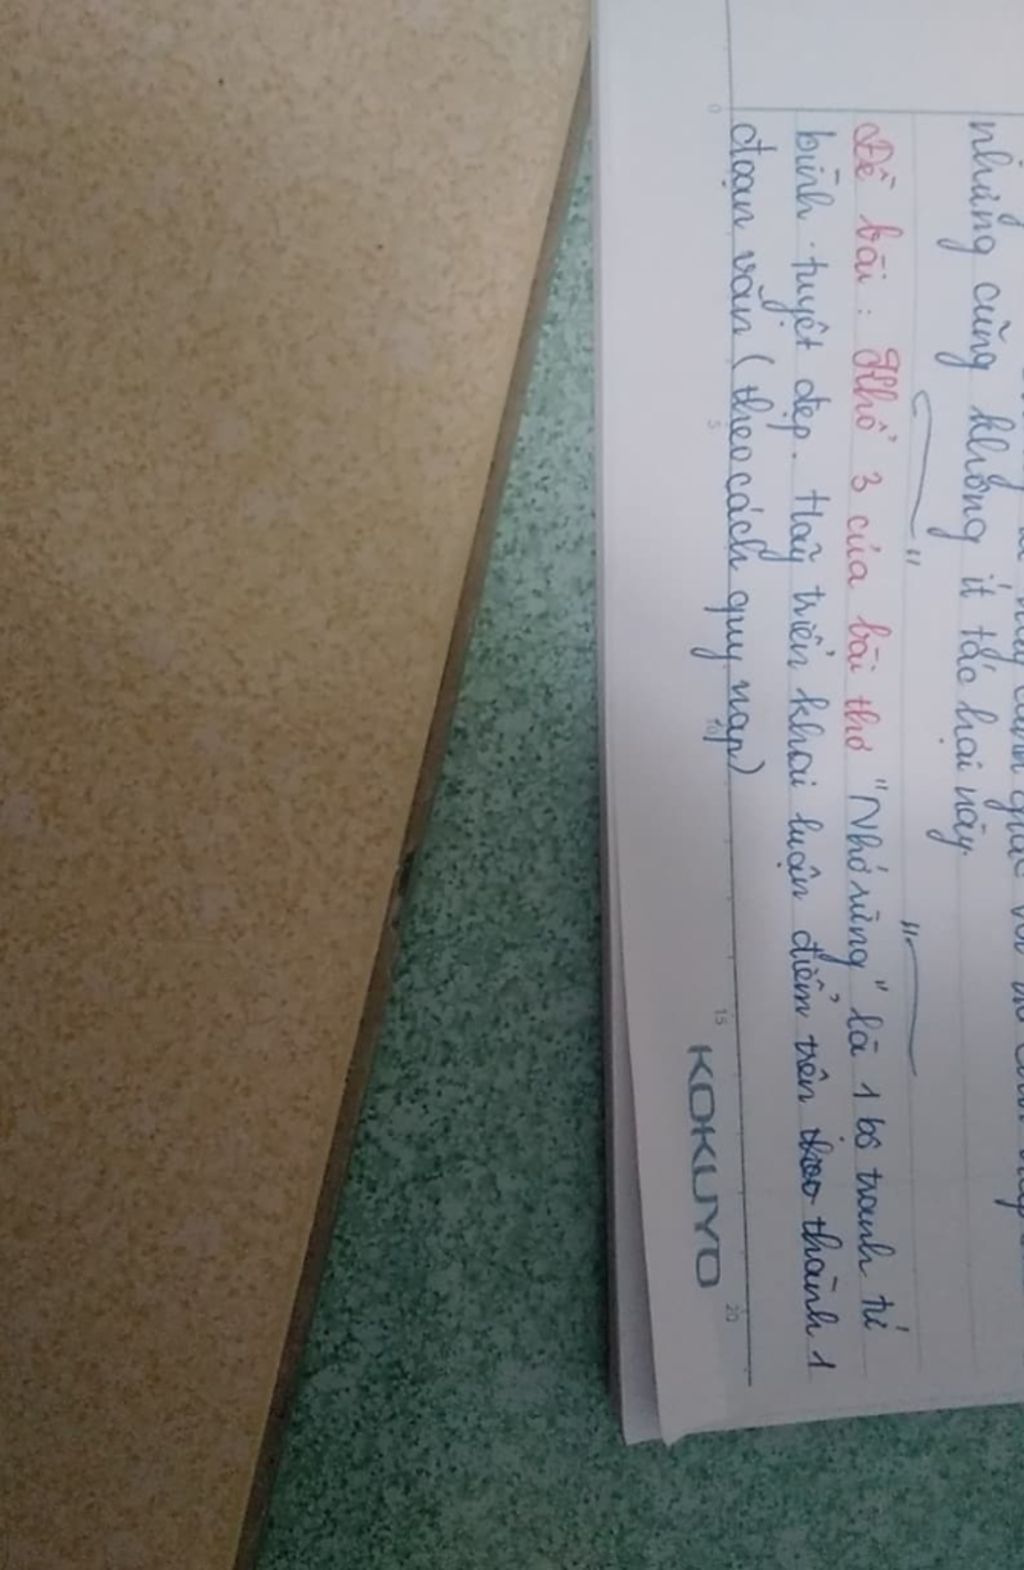 những cũng không ít tác hại này.
Đề bài: Khổ 3 của bài thơ "Nhớ rừng" là 1 bộ tranh tứ
bình tuyệt đẹp. Hãy triển khai luận điểm trên thành 1
đoạn văn (theo cách quy nạp)
0 5 10 15 20
KOKUYO